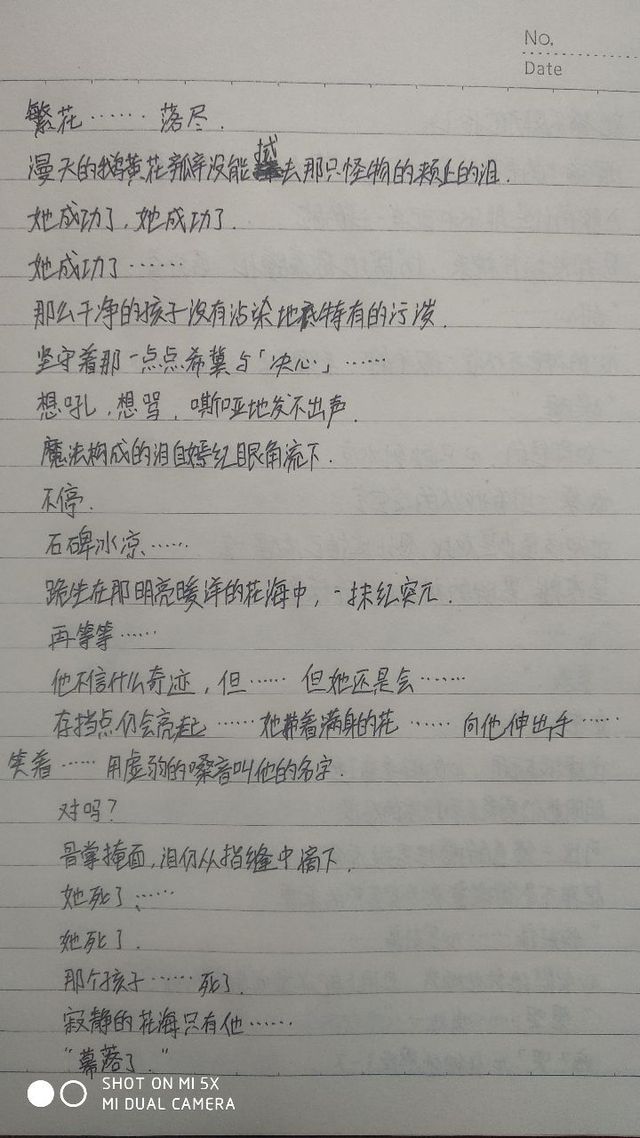 No.
Date
繁花…… 落尽.
漫天的鹅黄花瓣没能拭去那只怪物的颊上的泪.
她成功了,她成功了.
她成功了……
那么干净的孩子没有沾染地底特有的污泼.
坚守着那一点点希冀与「决心」……
想吼,想骂,嘶哑地发不出声.
魔法构成的泪自嫣红眼角流下.
不停.
石碑冰凉……
跪坐在那明亮暖洋的花海中,一抹红突兀.
再等等……
他不信什么奇迹,但…… 但她还是会……
存挡点仍会亮起……她带着满身的花…… 向他伸出手……
笑着…… 用虚弱的嗓音叫他的名字.
对吗?
骨掌掩面,泪仍从指缝中滴下.
她死了……
她死了.
那个孩子…… 死了.
寂静的花海只有他……
"幕落了."
SHOT ON MI 5X
MI DUAL CAMERA